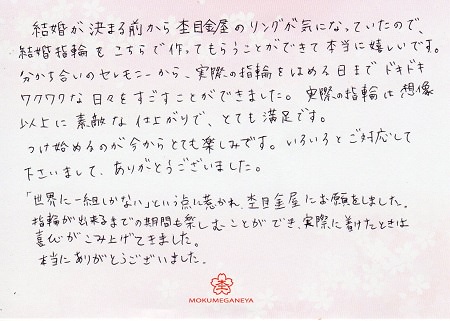 結婚が決まる前から杢目金屋のリングが気になっていたので、
結婚指輪をこちらで作ってもらうことができて本当に嬉しいです。
分かち合いのセレモニーから、実際の指輪をはめる日までドキドキ
ワクワクな日々をすごすことができました。実際の指輪は想像
以上に素敵な仕上がりで、とても満足です。
つけ始めるのが今からとても楽しみです。いろいろとご対応して
下さいまして、ありがとうございました。
「世界に一組しかない」という点に惹かれ、杢目金屋にお願いをしました。
指輪が出来るまでの期間も楽しむことができ、実際に着けたときは
喜びがこみ上げてきました。
本当にありがとうございました。
MOKUMEGANEYA